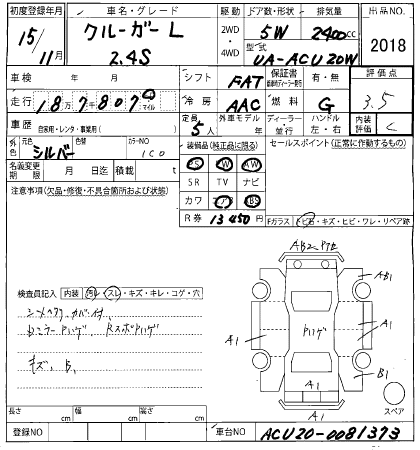 初度登録年月 車名・グレード 駆動 ドア数・形状 排気量 出品NO
15/11月 クルーガー L 2.4S 2WD・4WD 5W 2400cc 2018
型式 UA-ACU20W
車検 年 月 シフト FAT 保証書 有・無 評価点
走行 18万7千807 マイル 冷房 AAC 燃料 G 3.5
車歴 自家用・レンタ・事業用( ) 定員 5人 外車モデル 年 ディーラー・並行 ハンドル 左・右 内装評価 C
外色 元色 シルバー 色替 カラーNO 1C0 装備品(純正品に限る) セールスポイント(正常に作動するもの)
名義変更期限 月 日迄 積載 t PS PW AW
SR TV ナビ
注意事項(欠品・修復・不具合箇所および状態) カワ エアB ABS
R券 13450円 Fガラス トビ石・キズ・ヒビ・ワレ・リペア跡
AB2
検査員記入 内装 汚レ・スレ・キズ・キレ・コゲ・穴 AB1
A1 A1 A1
キズ、B、 B1
A1
A1 スペア
長さ cm 幅 cm 高さ cm
登録NO 車台NO ACU20-0081373